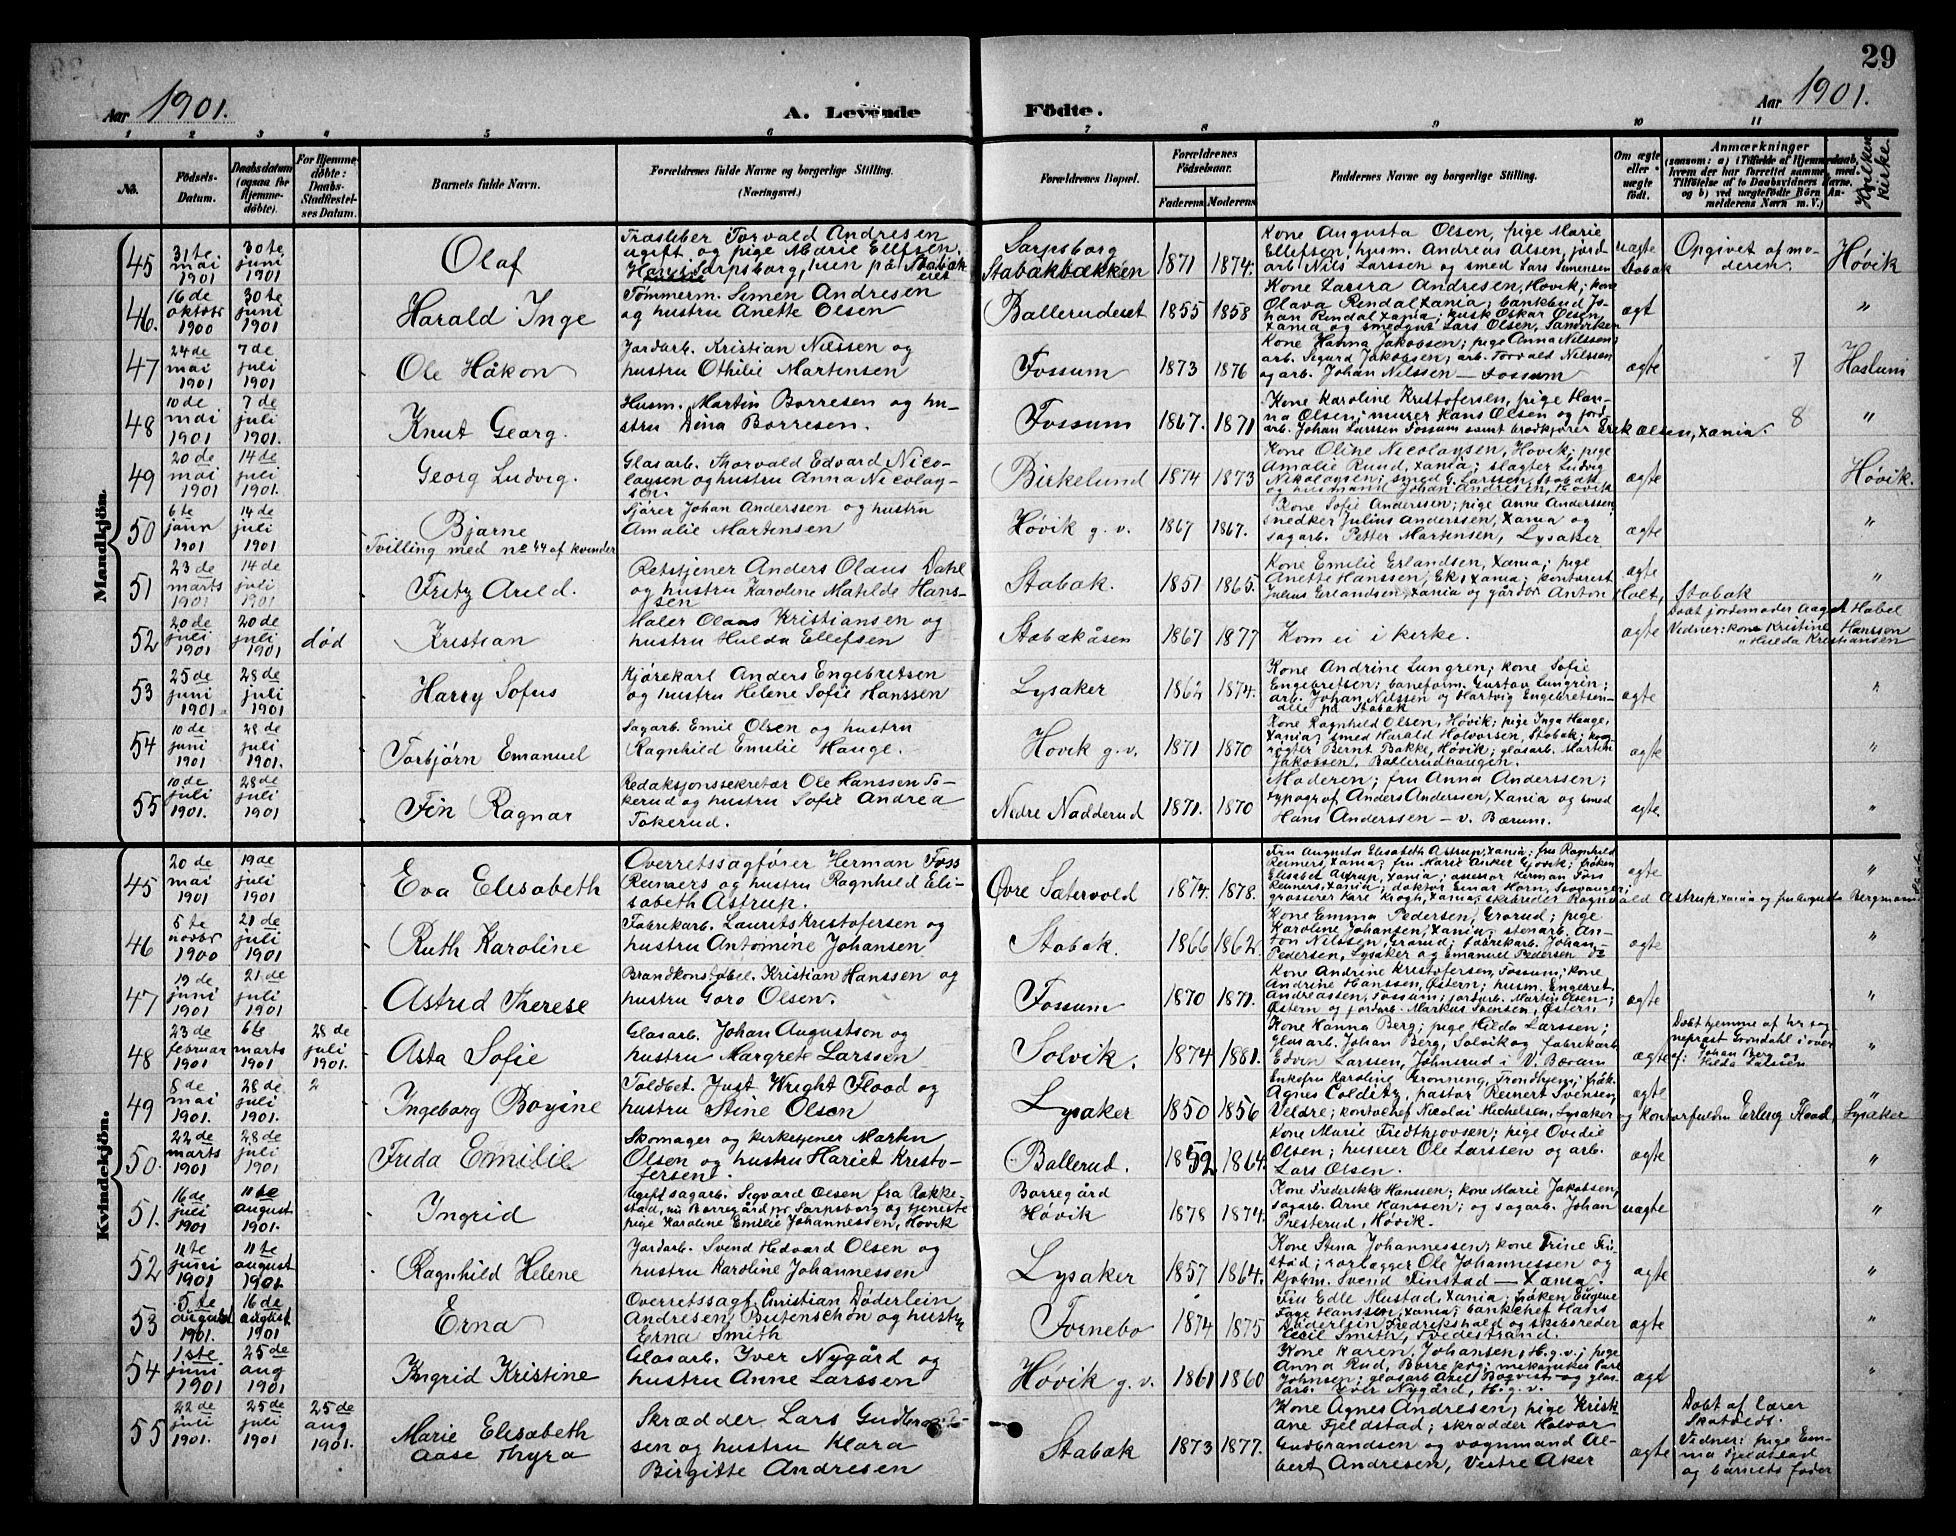 29
Aar 1901.
A. Levende Födte.
Aar 1901.
1 2 3 4 5 6 7 8 9 10 11
No.
Födsels-Datum.
Daabsdatum (ogsaa for Hjemmedöbte).
For Hjemmedöbte: Daabs-Stadfæstelses Datum.
Barnets fulde Navn.
Forældrenes fulde Navne og borgerlige Stilling.
(Næringsvei.)
Forældrenes Bopæl.
Forældrenes Födselsaar.
Faderens Moderens
Faddernes Navne og borgerlige Stilling.
Om ægte eller uægte födt.
Anmærkninger
(saasom: a) i Tilfælde af Hjemmedaab, hvem der har forrettet samme, med Tilföielse af to Daabsvidners Navne, og b) ved uægtefödte Börn Anmelderens Navn m. V.)
Hvilken kirke
Mandkjön.
45 31te mai 1901 30te juni 1901 Olaf
Træsliber Torvald Andresen
ugift og pige Marie Ellefsen.
Han: Sarpsborg, hun på Stabæk
Sarpsborg
Stabækbækken 1871 1874.
Kone Augusta Olsen, pige Marie
Ellefsen, husm. Andreas Olsen, jord-
arb Nils Larssen og smed Lars Simensen Stabæk
uægte Opgivet af moderen. Høvik
46. 16de oktobr 1900 30te juni 1901 Harald Inge
Tømmerm. Simen Andresen
og hustru Anette Olsen
Ballerudeiet 1855 1858
Kone Laura Andresen, Høvik; kone
Olava Rendal Xania; bankbud Jo-
han Rendal Xania; kusk Oskar Olsen,
Xania og smedgut Lars Olsen, Sandviken
ægt "
47 24de mai 1901 7de juli 1901 Ole Håkon
Jordarb. Kristian Nilssen og
hustru Othilie Martensen
Fossum 1873 1876
Kone Hanna Jakobsen; pige Anna Nilssen;
arb. Sigurd Jakobsen; arb. Torvald Nilssen
og arb. Johan Nilssen — Fossum
ægte 7 Haslum
48 10de mai 1901 7de juli 1901. Knut Georg.
Husm. Martin Borresen og hu-
stru Dina Borresen.
Fossum 1867. 1871
Kone Karoline Kristofersen, pige Han-
na Olsen; murer Hans Olsen og jord-
arb. Johan Larssen Fossum samt brødkjører Erik Olsen, Xania. 8 "
49 20de mai 1901 14de juli 1901. Georg Ludvig.
Glasarb. Thorvald Edvard Nico-
laysen og hustru Anna Nicolay-
sen.
Birkelund 1874 1873
Kone Oline Nicolaysen, Høvik; pige
Amalie Rund, Xania; slagter Ludvig
Nikolaysen; smed G. Larssen, Stabæk
og husmand Johan Andresen, Høvik
ægte Høvik.
50 6te janr 1901 14de juli 1901. Bjarne
Tvilling med no 44 af kvinder
Kjører Johan Anderssen og hustru
Amalie Martensen
Høvik g. v. 1867 1867.
Kone Sofie Anderssen; pige Anne Anderssen
snedker Julius Anderssen, Xania og
sagarb. Petter Martensen, Lysaker
ægte "
51 23de marts 1901 14de juli 1901 Fritz Arild.
Retstjener Anders Olaus Dahl
og hustru Karoline Matilde Hans-
sen
Stabæk. 1851 1865.
Kone Emilie Erlandsen, Xania; pige
Anette Hanssen, Ek, Xania; kontorist
Julius Erlandsen, Xania og gårdbr Anton Holt, Stabæk
ægte "
52 20de juli 1901 20de juli 1901 død Kristian
Maler Olaus Kristiansen og
hustru Hulda Ellefsen
Stabækåsen 1867 1877
Kom ei i kirke.
ægte Døbt jordemoder Aagot Habel
Vidner: kone Kristine Hanssen
" Hilda Kristiansen
53 25de juni 1901 28de juli 1901 Harry Sofus
Kjørekarl Anders Engebretsen
og hustru Helene Sofie Hanssen
Lysaker 1862 1874.
Kone Andrine Lungren; kone Sofie
Engebretsen; baneform. Gustav Lungren;
arb. Johan Nilssen og Hartvig Engebretsen
alle på Stabæk
ægte "
54 10de juni 1901 28de juli 1901. Torbjørn Emanuel
Sagarb. Emil Olsen og hustru
Ragnhild Emilie Hauge.
Høvik g. v. 1871 1870
Kone Ragnhild Olsen, Høvik; pige Inga Hauge,
Xania; smed Harald Halvorsen, Stabæk; kog-
røgter Bernt Bakke, Høvik; glasarb. Martin
Jakobsen, Ballerudhaugen.
ægte "
55 10de juli 1901. 28de juli 1901 Fin Ragnar
Redaksjonssekretær Ole Hanssen To-
kerud og hustru Sofie Andrea
Tokerud.
Nedre Nadderud 1871. 1870
Moderen; fru Anna Anderssen;
typograf Anders Anderssen, Xania og smed
Hans Anderssen — v. Bærum.
ægte. "
Kvindekjön.
45 20de mai 1901 19de juli 1901 Eva Elisabeth
Overretssagfører Herman Foss
Reimers og hustru Ragnhild Eli-
sabeth Astrup.
Øvre Sætervold 1874. 1878.
Fru Augusta Elisabeth Astrup, Xania; fru Ragnhild
Reimers, Xania; fru Marie Anker Gjøvik; frøken
Elisabet Astrup, Xania; assessor Herman Foss
Reimers, Xania; doktor Einar Horn, Stavanger;
grosserer Kåre Krogh, Xania; skibsreder Ragnvald Astrup, Xania og fru Augusta Bergmann
ægte "
46 5te novbr 1900 21de juli 1901 Ruth Karoline
Fabrikarb. Laurits Kristofersen og
hustru Antomine Johansen
Stabæk. 1866 1862.
Kone Emma Pedersen, Grorud; pige
Karoline Johansen, Xania; stenarb. An-
ton Nilssen, Grorud; fabrikarb. Johan
Pedersen, Lysaker og Emanuel Pedersen do
ægte "
47 19de juni 1901 21de juli 1901 Astrid Therese
Brandkonstabel Kristian Hanssen og
hustru Goro Olsen.
Fossum 1870 1871.
Kone Andrine Kristofersen, Fossum; kone
Andrine Hanssen, Østern; husm. Engebret
Andreassen, Fossum; jordarb. Martin Olsen;
Østern og jordarb. Markus Svensen, Østern
ægte "
48 23de februar 1901 6te marts 1901 28de juli 1901. Asta Sofie
Glasarb. Johan Augustson og
hustru Margrete Larssen
Solvik. 1874 1881.
Kone Hanna Berg; pige Hilda Larssen;
glasarb. Johan Berg, Solvik og fabrikarb
Edvin Larsen, Johnsrud i V. Bærum
ægte Døbt hjemme af hr sog-
neprest Grøndahl i over
af: Johan Berg og
Hilda Larssen "
49 8de mai 1901. 28de juli 1901. 2 Ingeborg Boyine
Toldbet. Just Wright Flood og
hustru Stine Olsen
Lysaker 1850 1856
Enkefru Karoline Grønning, Trondhjem; frøk.
Agnes Colditz, pastor Reinert Svensen,
Veldre; kontorchef Nicolai Michelsen, Lysaker og kontorfuldm Erling Flood, Lysaker
ægte "
50. 22de marts 1901 28de juli 1901 Frida Emilie
Skomager og kirketjener Martin
Olsen og hustru Hariet Kristo-
fersen.
Ballerud. 1852 1864.
Kone Marie Fredthjovsen; pige Ovidie
Olsen; huseier Ole Larssen og arb.
Lars Olsen.
ægte "
51. 16de juli 1901 11te august 1901. Ingrid
Ugift sagarb. Sigvard Olsen fra Rakke-
stad, nu Borregård pr Sarpsborg og tjeneste
pige Karoline Emilie Johannessen, Høvik
Borregård
Høvik 1878 1874.
Kone Frederikke Hanssen; kone Marie Jakobsen,
sagarb. Arne Hanssen; og sagarb. Johan
Presterud, Høvik.
uægte "
52 11te juni 1901 11te august 1901. Ragnhild Helene
Jordarb. Svend Hedvard Olsen og
hustru Karoline Johannessen
Lysaker 1857 1864.
Kone Stina Johannessen; kone Trine Fin-
stad; rørlegger Ole Johannessen og
kjøbm. Svend Finstad — Xania.
ægte "
53 5te august 1901. 16de august 1901 Erna
Overretssagf. Christian Døderlein
Andresen Butenschøn og hustru
Erna Smith
Fornebo 1874 1875
Fru Edle Mustad, Xania; frøken Eugenie
Faye Hanssen, Xania; bankchef Hans
Døderlein Fredrikshald og skibsreder
Cecil Smith, Tvedestrand.
ægte "
54 1ste juni 1901 25de aug 1901 Ingrid Kristine
Glasarb. Iver Nygård og
hustru Anne Larssen
Høvik g. v. 1861 1860
Kone Karen Johansen, H. g. v.; pige
Anna Rud, Borre pgj; mekaniker Carl
Johnsen; glasarb Axel Bogvist og glas-
arb. Iver Nygård, H. g. v.
ægt "
55 22de juli 1901. 25de juli 1901 25de aug 1901. Marie Elisabeth
Aase Thyra
Skrædder Lars Gudbrand-
sen og hustru Klara
Birgitte Andresen
Stabæk 1873 1877.
Kone Agnes Andresen; pige Krist-
ane Fjeldstad; skrædder Halvor
Gudbrandsen og vognmand Al-
bert Andresen, Vestre Aker
ægte Døbt af lærer
Skatvedt.
Vidner: pige Em-
ma Fjeldstad
og barnets fader